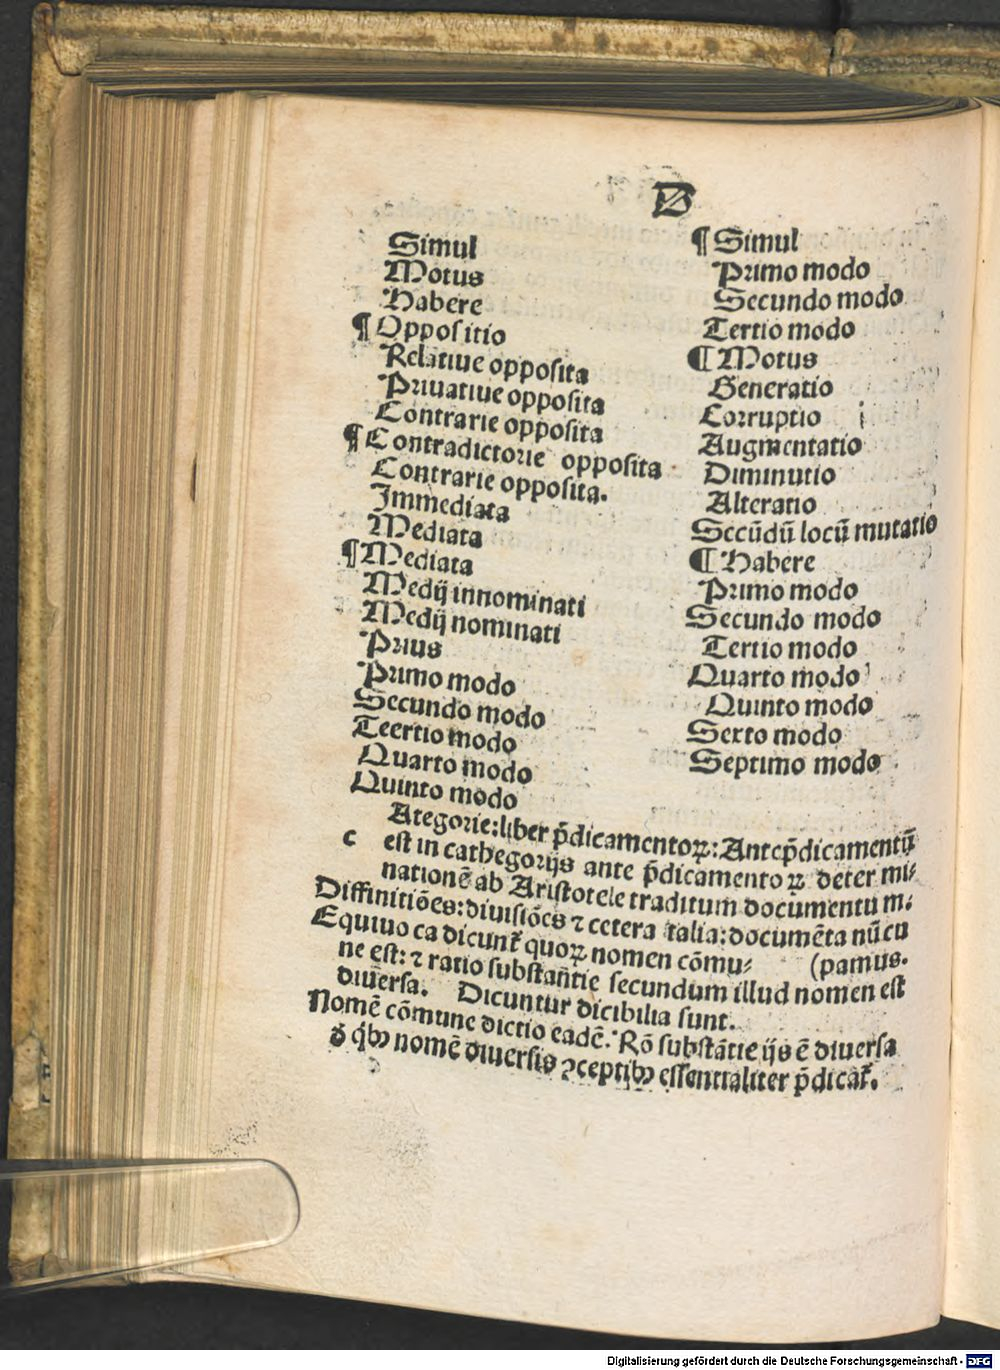 B
Simul
Motus
Habere
¶ Oppositio
Relatiue opposita
Priuatiue opposita
Contrarie opposita
¶ Contradictorie opposita
Contrarie opposita.
Immediata
Mediata
¶ Mediata
Medij innominati
Medij nominati
Prius
Primo modo
Secundo modo
Teertio modo
Quarto modo
Quinto modo
¶ Simul
Primo modo
Secundo modo
Tertio modo
¶ Motus
Generatio
Corruptio
Augmentatio
Diminutio
Alteratio
Secūdū locū mutatio
¶ Habere
Primo modo
Secundo modo
Tertio modo
Quarto modo
Quinto modo
Sexto modo
Septimo modo
Ategorie:liber p̄dicamentoꝝ:Antep̄dicamentū
c est in cathegorijs ante p̄dicamentoꝝ determi⸗
nationē ab Aristotele traditum documentū
Diffinitiōes:diuisiōes ⁊ cetera talia:documēta nūcu
Equiuoca dicunt᷑ quoꝝ nomen cōmu⸗ (pamus.
ne est: ⁊ ratio substantie secundum illud nomen est
diuersa. Dicuntur dicibilia sunt.
Nomē cōmune dictio eadē. Rō substātie ijs ē diuersa
nomē diuersis ꝯceptibꝰ essentialiter p̄dicat᷑.
Digitalisierung gefördert durch die Deutsche Forschungsgemeinschaft - DFG